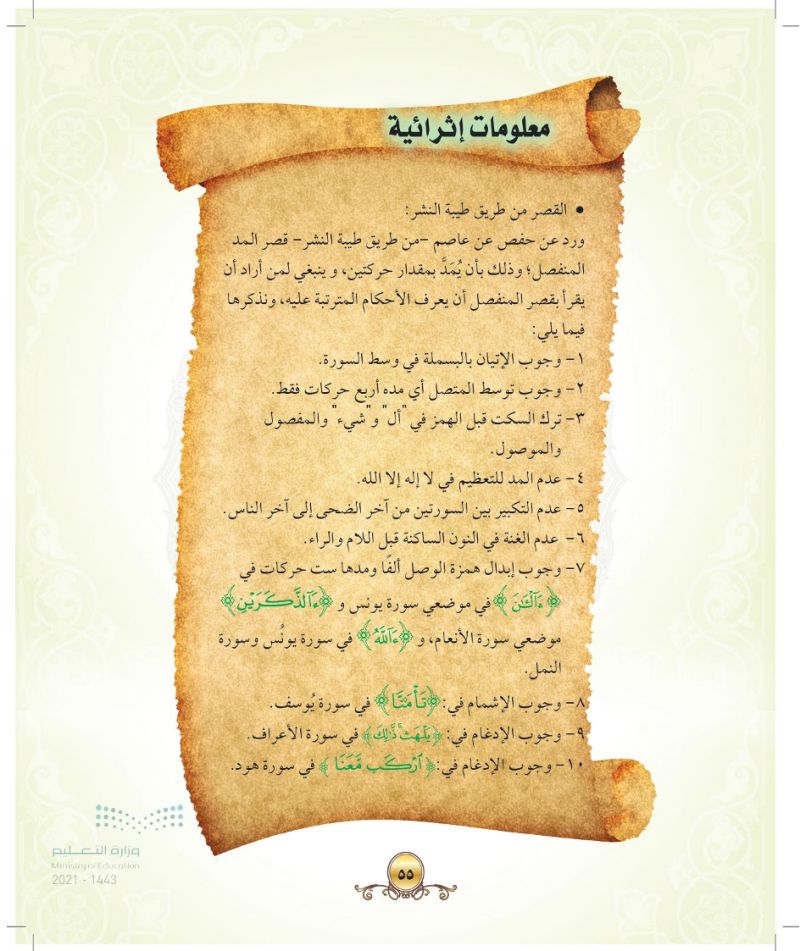 معلومات إثرائية
• القصر من طريق طيبة النشر:
ورد عن حفص عن عاصم -من طريق طيبة النشر- قصر المد
المنفصل؛ وذلك بأن يُمَدَّ بمقدار حركتين، و ينبغي لمن أراد أن
يقرأ بقصر المنفصل أن يعرف الأحكام المترتبة عليه، ونذكرها
فيما يلي:
١- وجوب الإتيان بالبسملة في وسط السورة.
٢- وجوب توسط المتصل أي مده أربع حركات فقط.
٣- ترك السكت قبل الهمز في "أل" و"شيء" والمفصول
والموصول.
٤- عدم المد للتعظيم في لا إله إلا الله.
٥- عدم التكبير بين السورتين من آخر الضحى إلى آخر الناس.
٦- عدم الغنة في النون الساكنة قبل اللام والراء.
٧- وجوب إبدال همزة الوصل ألفًا ومدها ست حركات في
﴿ءَآلۡـَٰٔنَ﴾ في موضعي سورة يونس و ﴿ءَآلذَّكَرَيۡنِ﴾
موضعي سورة الأنعام، و ﴿ءَآللَّهُ﴾ في سورة يونُس وسورة
النمل.
٨- وجوب الإشمام في: ﴿تَأۡمَ۬نَّا﴾ في سورة يُوسف.
٩- وجوب الإدغام في: ﴿يَلۡهَثۚ ذَّٰلِكَ﴾ في سورة الأعراف.
١٠- وجوب الإدغام في: ﴿ٱرۡكَب مَّعَنَا﴾ في سورة هود.
وزارة التعليم
Ministry of Education
2021 - 1443
٥٥